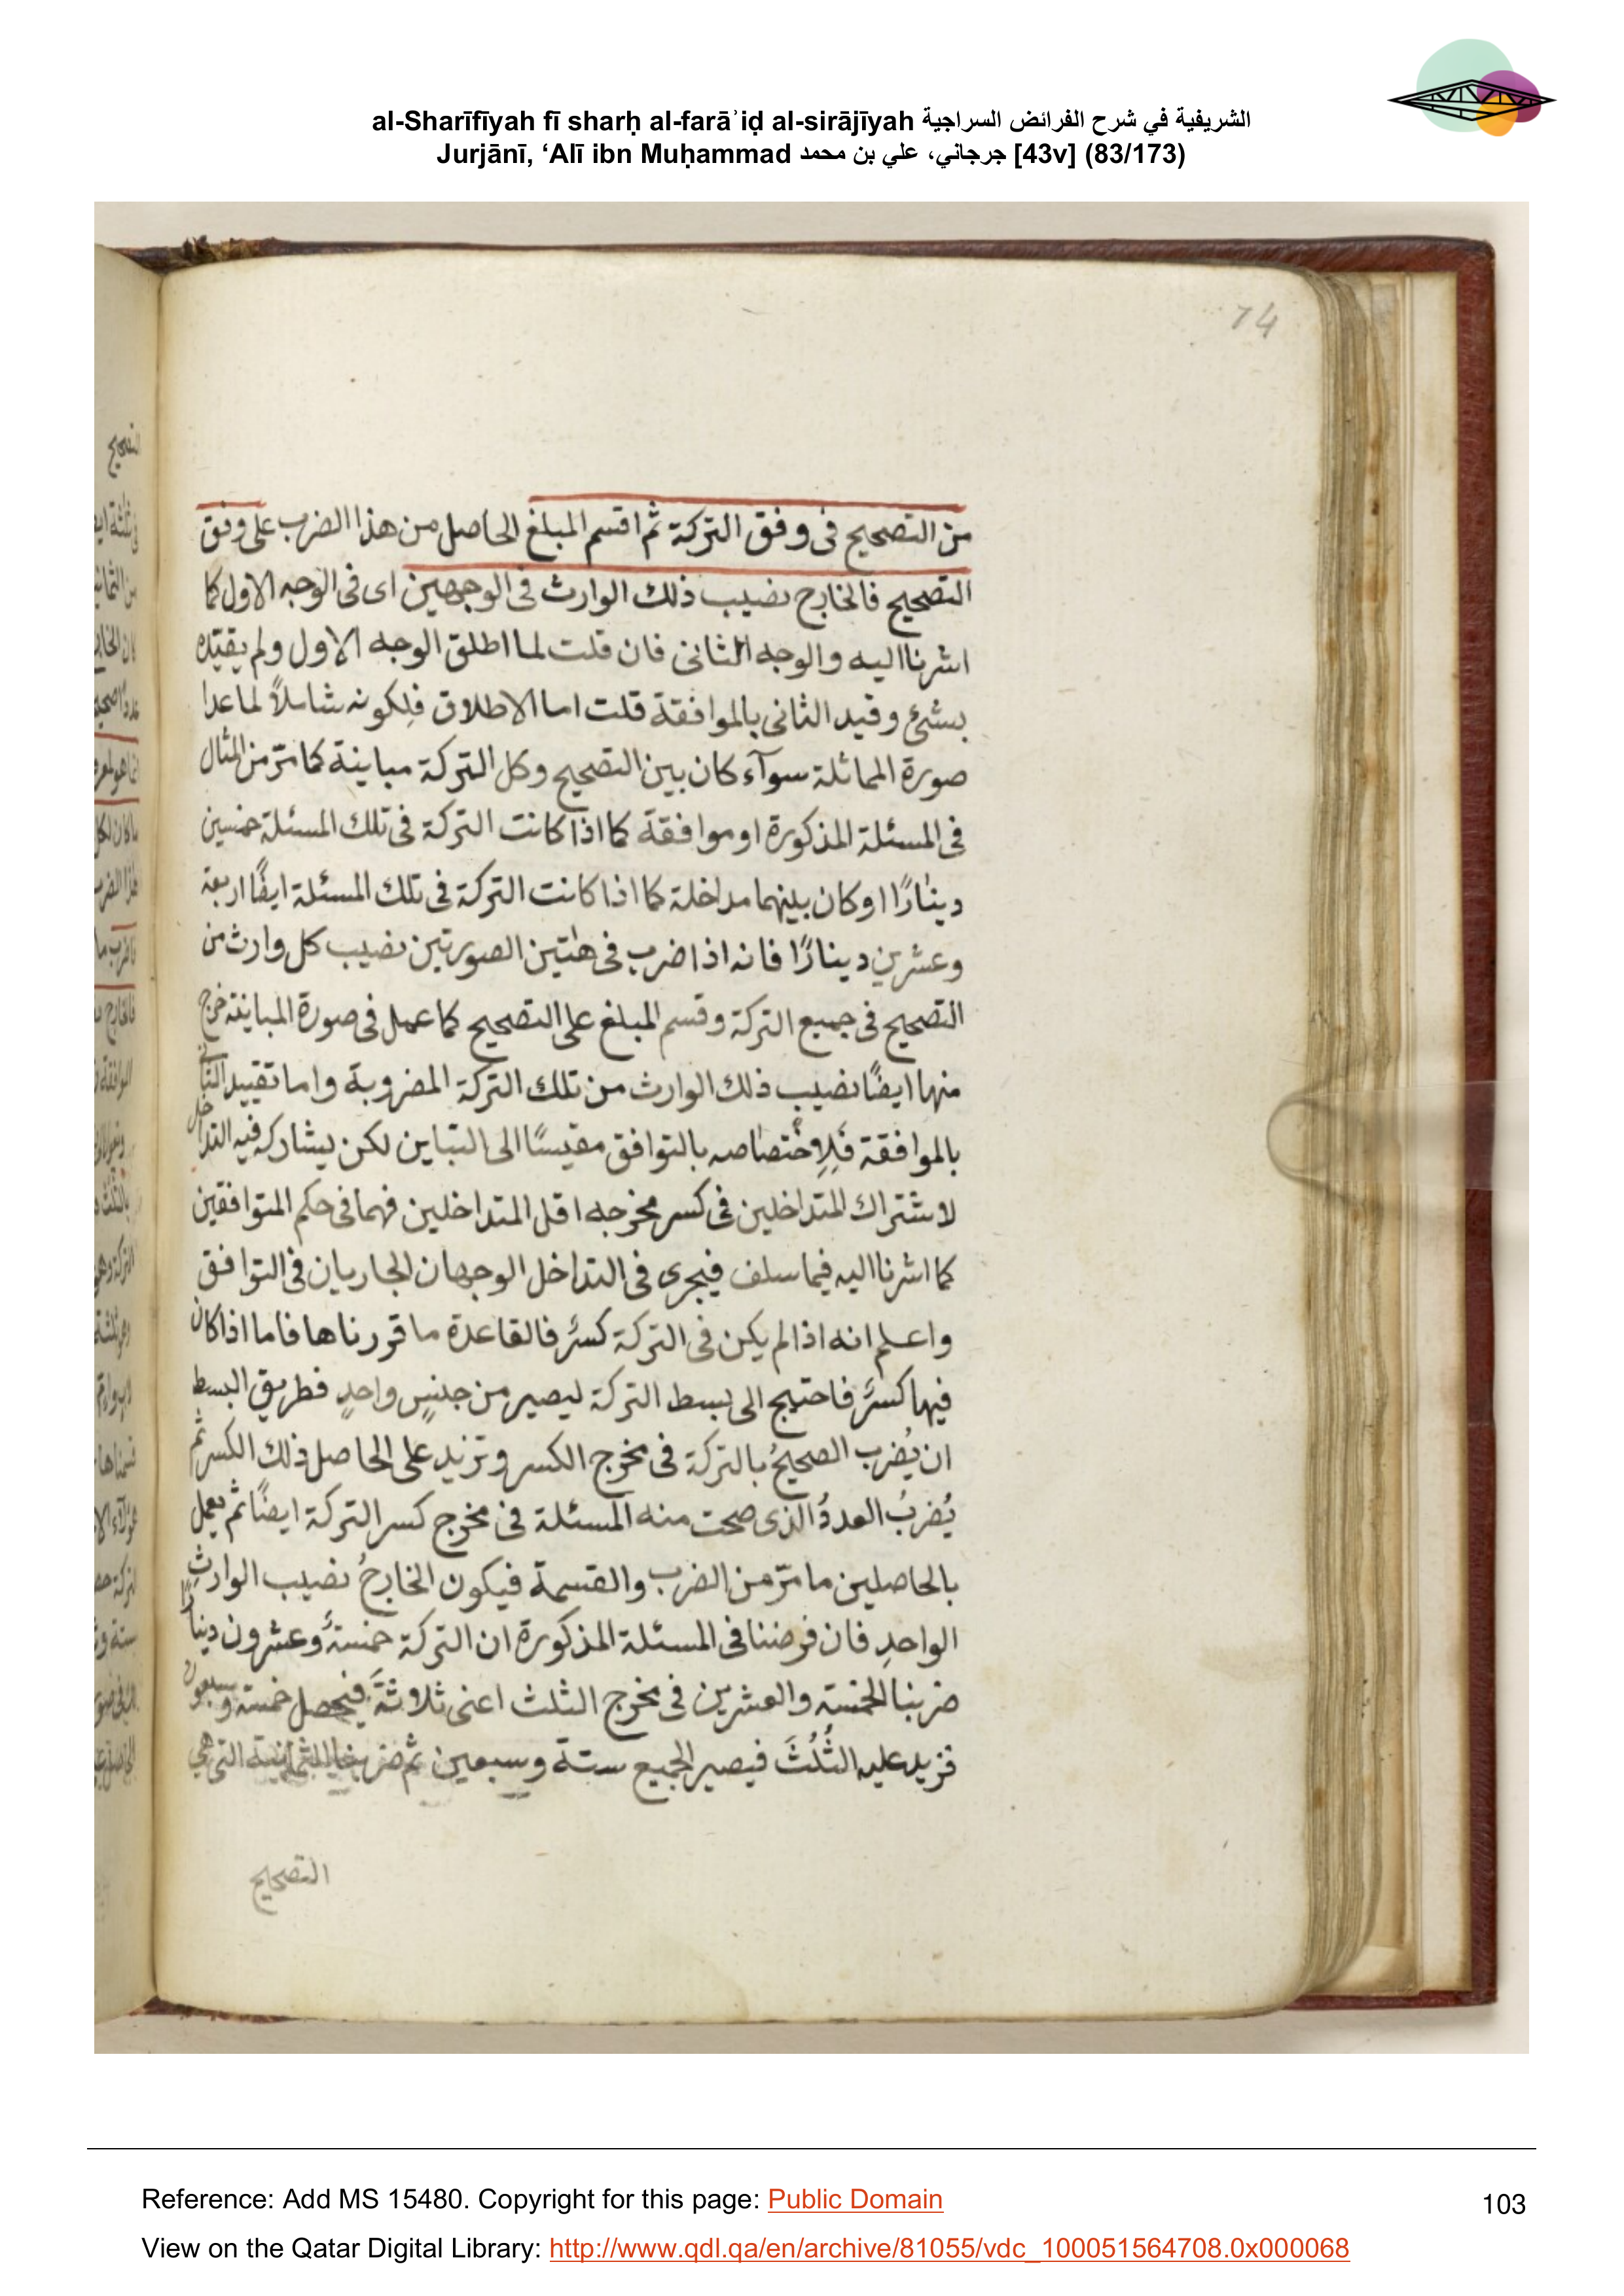 al-Sharīfīyah fī sharḥ al-farāʾiḍ al-sirājīyah الشريفية في شرح الفرائض السراجية
Jurjānī, ‘Alī ibn Muḥammad جرجاني، علي بن محمد [43v] (83/173)
74
من التصحيح فى وفق التركة ثم اقسم المبلغ الحاصل من هذا الضرب على وفق
التصحيح فالخارج نصيب ذلك الوارث فى الوجهين اى فى الوجه الاول كما
اشرنا اليه والوجه الثانى فان قلت لما اطلق الوجه الاول ولم يقيّده
بشئ وقيد الثانى بالموافقة قلت اما الاطلاق فلِكونه شاملاً لما عدا
صورة المماثلة سوآء كان بين التصحيح وكل التركة مباينة كما مرّ من المثال
فى المسئلة المذكورة او موافقة كما اذا كانت التركة فى تلك المسئلة خمسين
دينارًا او كان بينهما مداخلة كما اذا كانت التركة فى تلك المسئلة ايضًا اربعة
وعشرين دينارًا فانه اذا ضرب فى هٰتين الصورتين نصيب كل وارث من
التصحيح فى جميع التركة وقسم المبلغ على التصحيح كما عمل فى صورة المباينة خرج
منها ايضًا نصيب ذلك الوارث من تلك التركة المضروبة واما تقييد الثانى
بالموافقة فَلِاِختصاصه بالتوافق مقيسًا الى التباين لكن يشاركه فيه التداخل
لاشتراك المتداخلين فى كسر مخرجه اقل المتداخلين فهما فى حكم المتوافقين
كما اشرنا اليه فيما سلف فيجرى فى التداخل الوجهان الجاريان فى التوافق
واعلم انه اذا لم يكن فى التركة كسرٌ فالقاعدة ما قررناها فاما اذا كان
فيها كسرٌ فاحتيج الى بسط التركة ليصير من جنسٍ واحدٍ فطريق البسط
ان يُضرب الصحيحُ بالتركة فى مخرج الكسر وتزيد على الحاصل ذلك الكسر ثم
يُضربُ العددُ الذى صحت منه المسئلة فى مخرج كسر التركة ايضًا ثم يعمل
بالحاصلين ما مرّ من الضرب والقسمة فيكون الخارجُ نصيب الوارثِ
الواحدِ فان فرضنا فى المسئلة المذكورة ان التركة خمسةٌ وعشرون دينارًا
ضربنا الخمسة والعشرين فى مخرج الثلث اعنى ثلاثةَ فيحصل خمسة وسبعون
فزيد عليه الثُلُثَ فيصير الجميع ستة وسبعين ثم ضربنا الثمانية التى هى
التصحيح
Reference: Add MS 15480. Copyright for this page: Public Domain
103
View on the Qatar Digital Library: http://www.qdl.qa/en/archive/81055/vdc_100051564708.0x000068